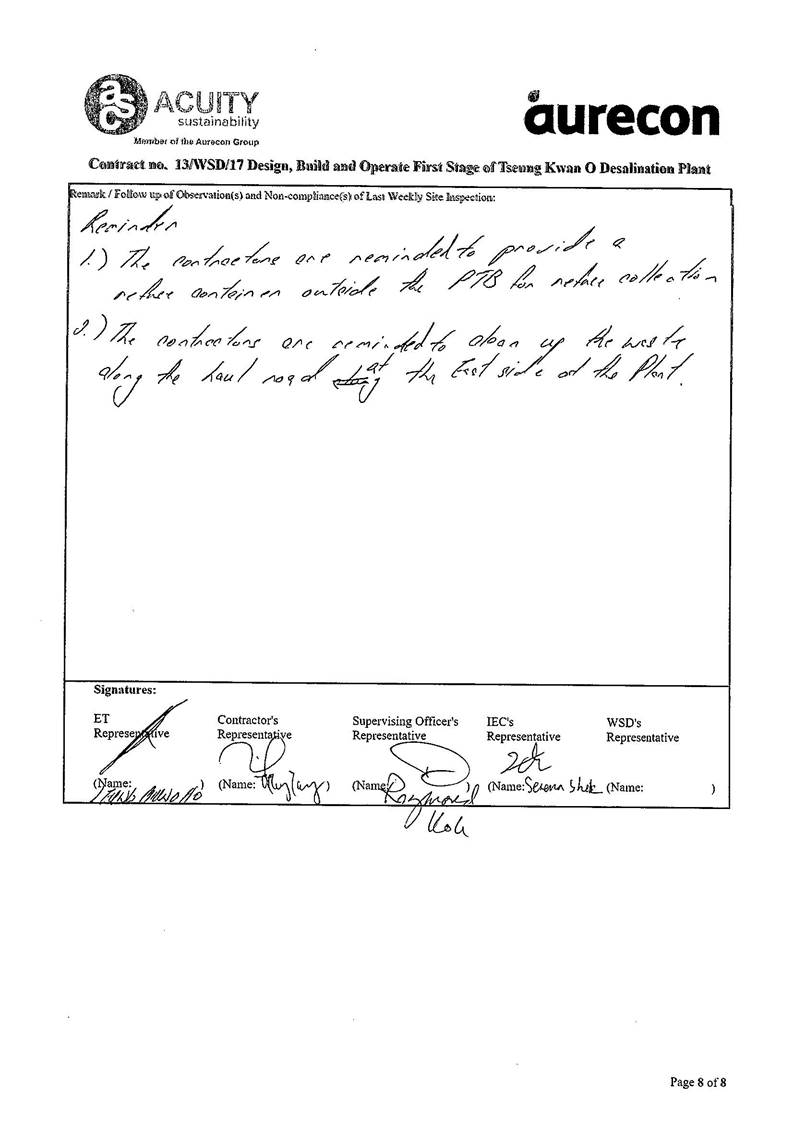 asc ACUITY
sustainability
Member of the Aurecon Group
aurecon
Contract no. 13/WSD/17 Design, Build and Operate First Stage of Tseung Kwan O Desalination Plant
Remark / Follow up of Observation(s) and Non-compliance(s) of Last Weekly Site Inspection:
Reminder
1.) The contractors are reminded to provide a
refuse container outside the PTB for refuse collection
2.) The contractors are reminded to clean up the waste
along the haul road at the East side of the Plant.
Signatures:
ET Contractor's Supervising Officer's IEC's WSD's
Representative Representative Representative Representative Representative
(Name: ) (Name: ) (Name: Raymond ) (Name: Serena Shek (Name: )
Koh
Page 8 of 8